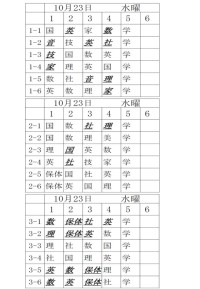 10月23日 水曜
1 2 3 4 5 6
1-1 国 英 家 数 学
1-2 音 技 英 社 学
1-3 技 国 数 英 学
1-4 家 理 英 国 学
1-5 数 社 音 理 学
1-6 英 数 理 家 学
10月23日 水曜
1 2 3 4 5 6
2-1 国 数 社 理 学
2-2 英 数 理 美 学
2-3 理 国 英 数 学
2-4 英 社 技 家 学
2-5 保体 国 社 英 学
2-6 保体 国 英 数 学
10月23日 水曜
1 2 3 4 5 6
3-1 数 保体 社 英 学
3-2 理 保体 英 数 学
3-3 理 社 数 国 学
3-4 社 国 理 英 学
3-5 英 数 保体 理 学
3-6 数 英 保体 社 学